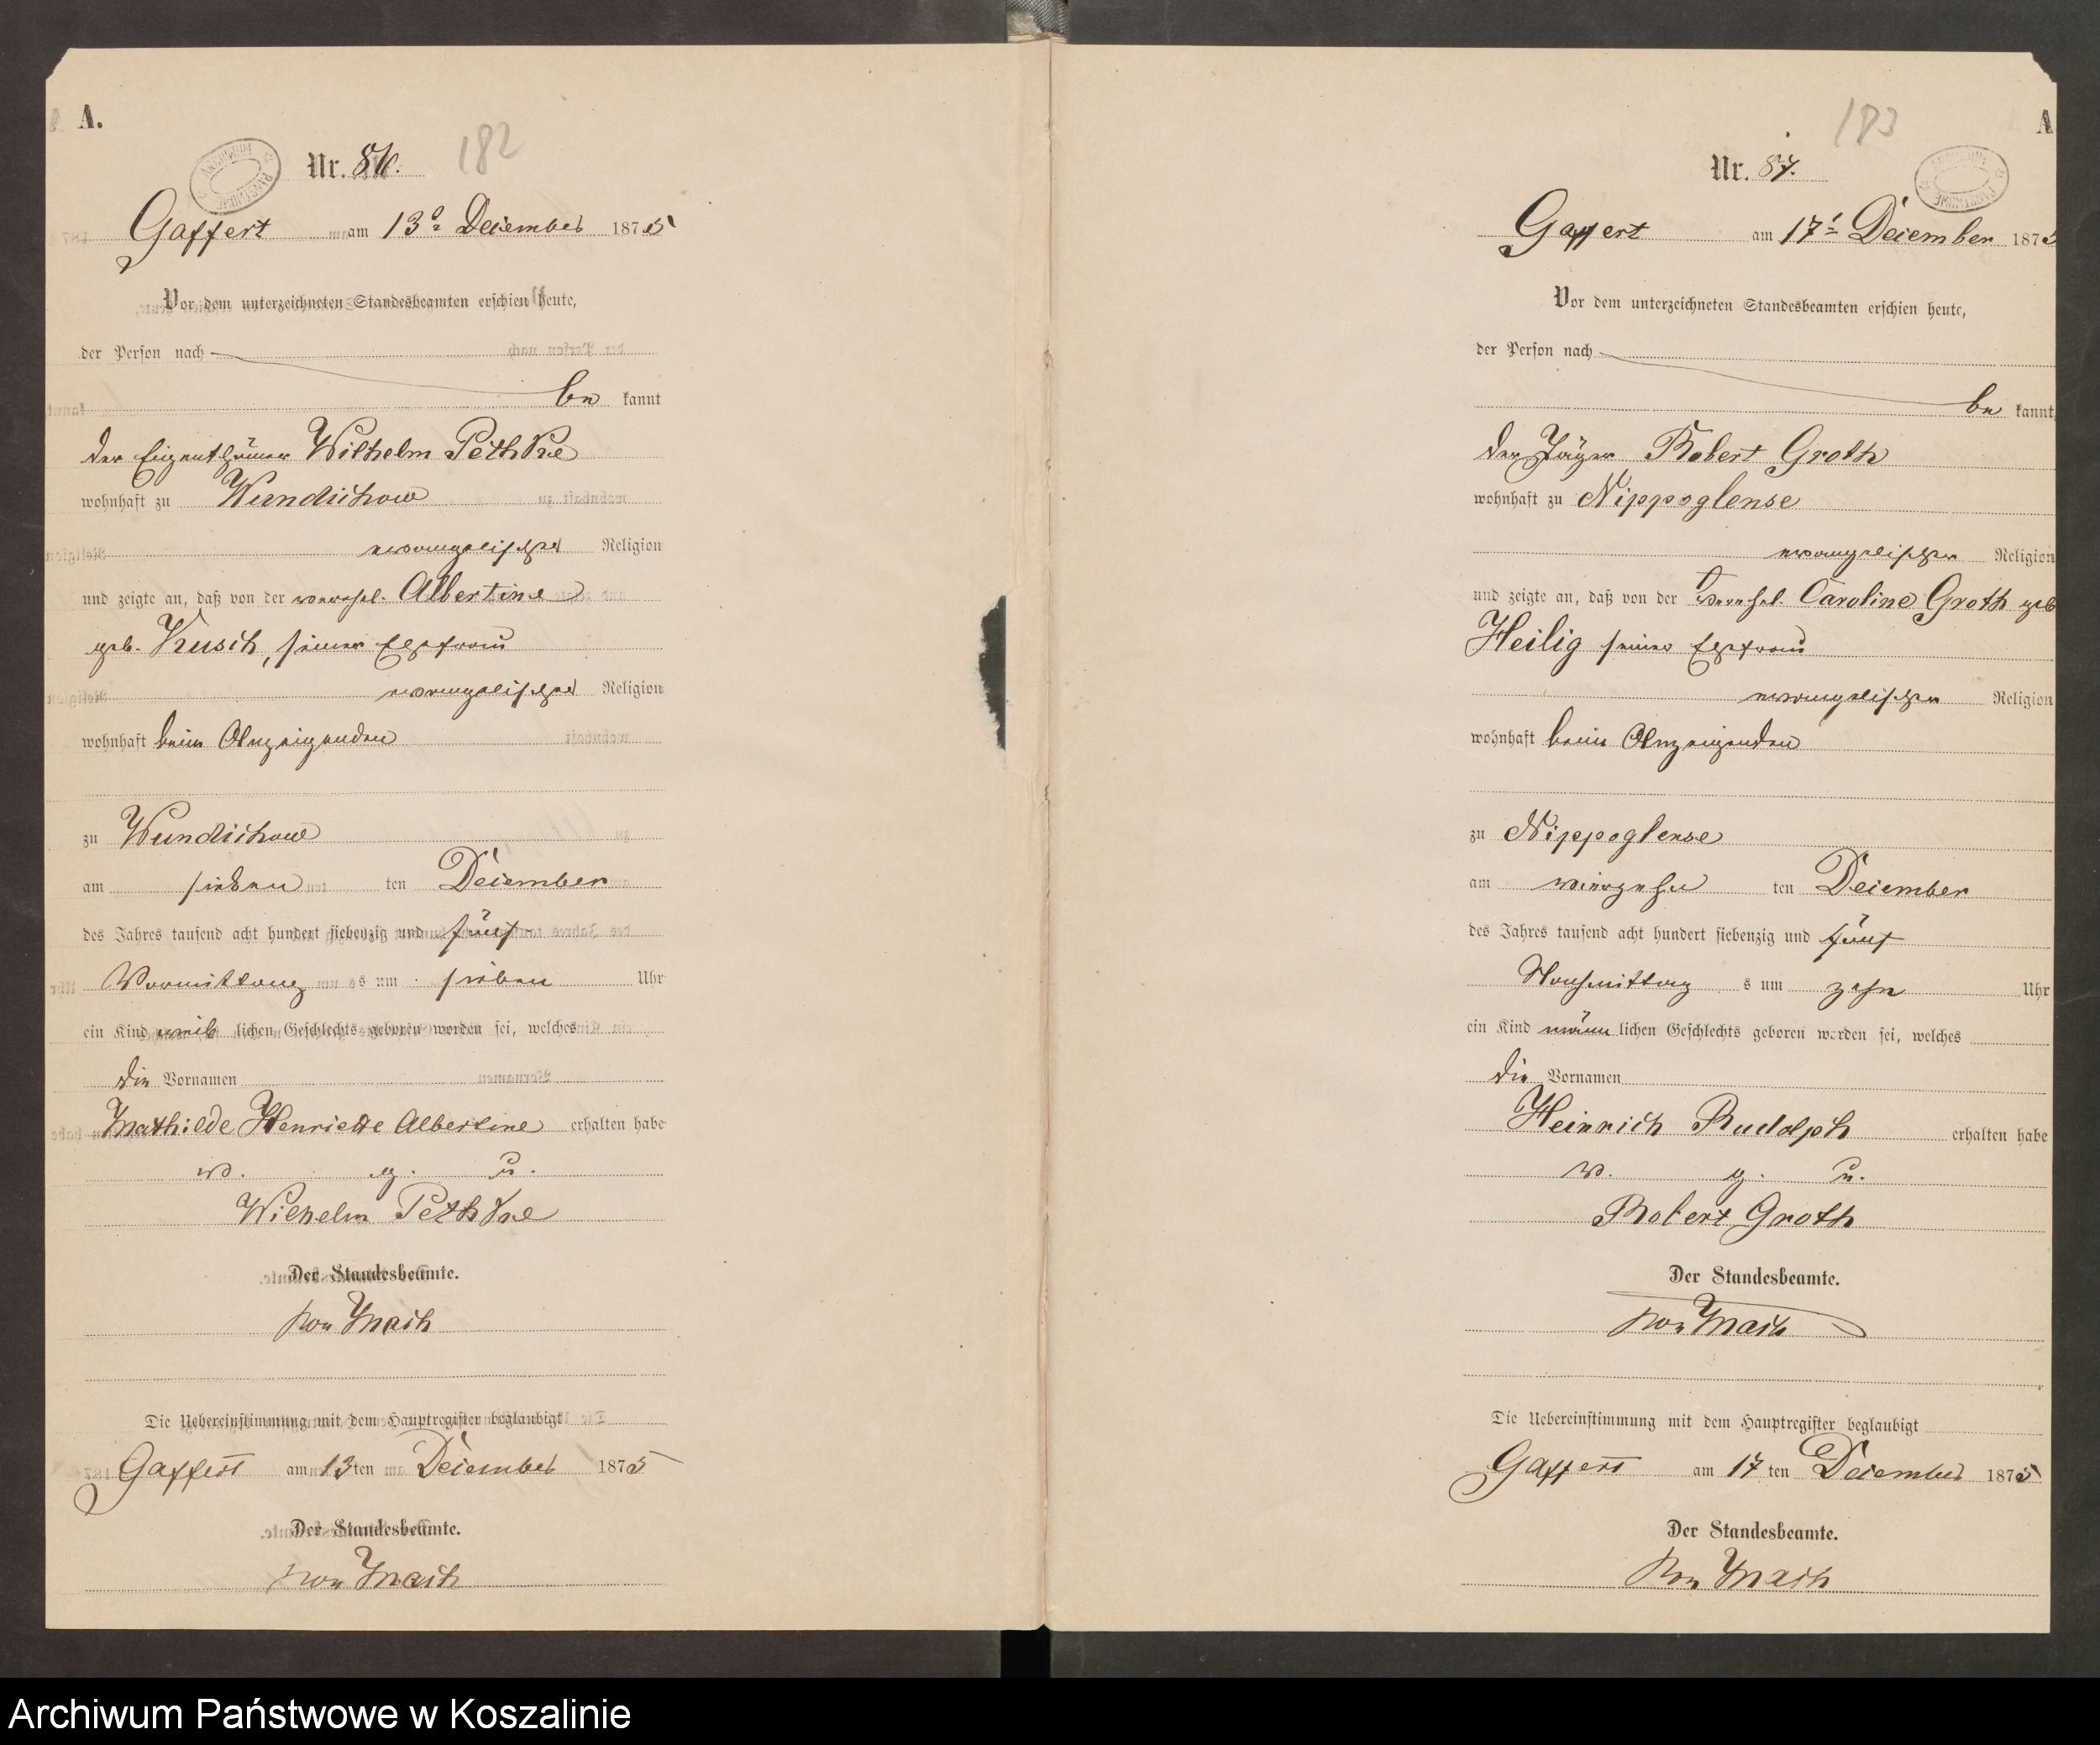 A.
182
Nr. 86.
Gaffert am 13ᵗ December 1875
Vor dem unterzeichneten Standesbeamten erschien heute,
der Person nach
be kannt
der Eigenthümer Wilhelm Pethke
wohnhaft zu Wundichow
evangelischer Religion
und zeigte an, daß von der verehel. Albertine
geb. Kusch, seiner Ehefrau
evangelischer Religion
wohnhaft beim Anzeigenden
zu Wundichow
am sieben ten December
des Jahres tausend acht hundert siebenzig und fünf
Vormittag s um sieben Uhr
ein Kind weib lichen Geschlechts geboren worden sei, welches
die Vornamen
Mathilde Henriette Albertine erhalten habe
v. g. u.
Wilhelm Pethke
Der Standesbeamte.
von Mach
Die Uebereinstimmung mit dem Hauptregister beglaubigt
Gaffert am 13 ten December 1875
Der Standesbeamte.
von Mach
A
183
Nr. 87.
Gaffert am 17ᵗ December 1875
Vor dem unterzeichneten Standesbeamten erschien heute,
der Person nach
be kannt
der Jäger Robert Groth
wohnhaft zu Nippoglense
evangelischer Religion
und zeigte an, daß von der verehel. Caroline Groth geb
Heilig seiner Ehefrau
evangelischen Religion
wohnhaft beim Anzeigenden
zu Nippoglense
am vierzehn ten December
des Jahres tausend acht hundert siebenzig und fünf
Nachmittag s um zehn Uhr
ein Kind männ lichen Geschlechts geboren worden sei, welches
die Vornamen
Heinrich Rudolph erhalten habe
v. g. u.
Robert Groth
Der Standesbeamte.
von Mach
Die Uebereinstimmung mit dem Hauptregister beglaubigt
Gaffert am 17 ten December 1875
Der Standesbeamte.
von Mach
Archiwum Państwowe w Koszalinie